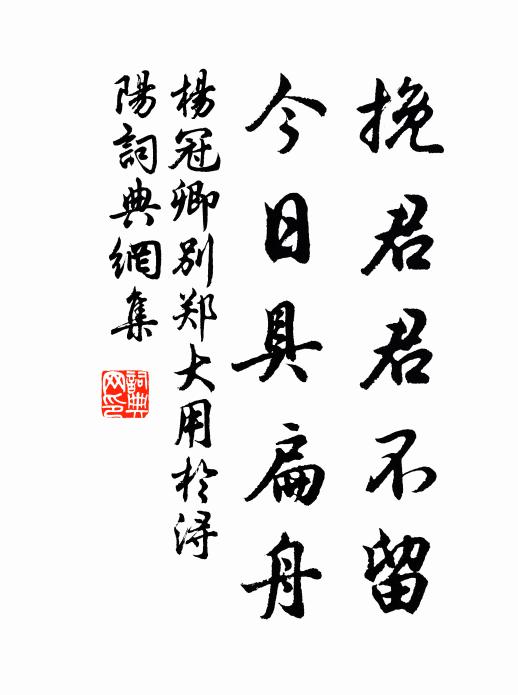 挽君君不留
今日具扁舟
楊冠卿别郑大用於浔
陽詞典網集
詞典网印